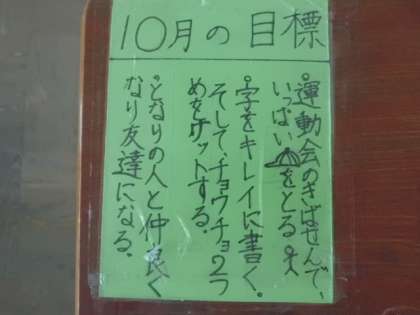 10月の目標
。運動会のきばせんで、
いっぱいをとる
。字をキレイに書く。
そしてチョウチョ2つ
めをゲットする。
。となりの人と仲良く
なり友達になる。